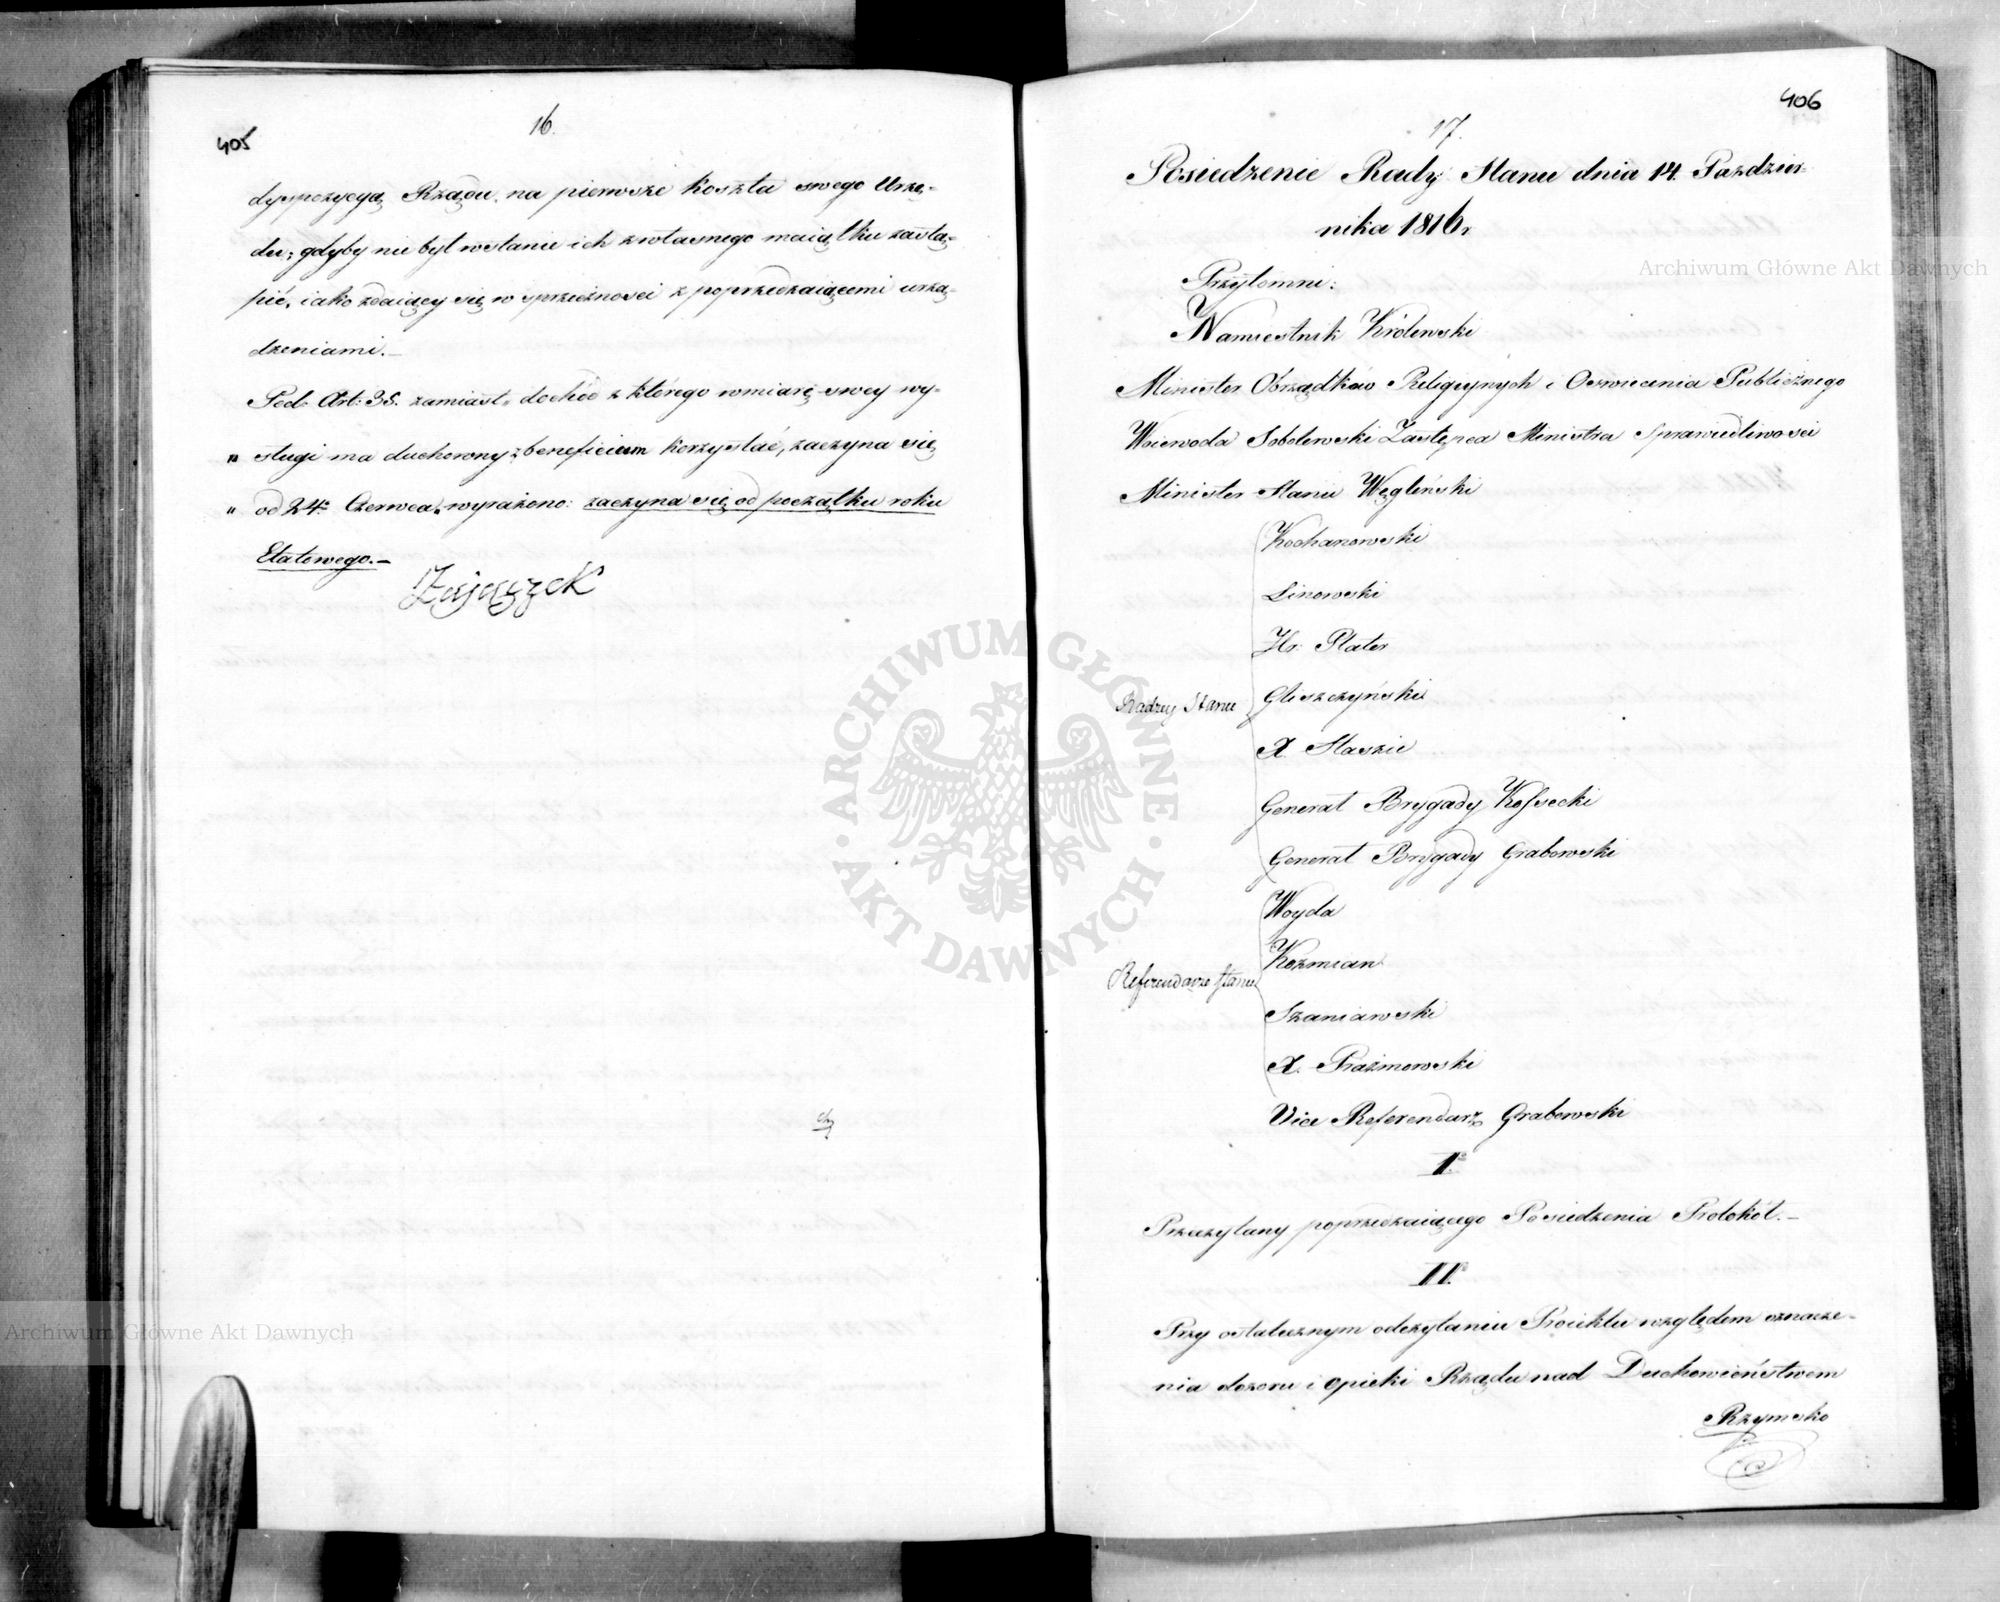 405
16.
dyspozycyą Rządu, na pierwsze koszta swego Urzę-
du; gdyby nie był wstanie ich z własnego maiątku zastą-
pić, iako zdaiący się w sprzeżności z poprzedzaiącemi urzą-
dzeniami.—
Pod Art: 35. zamiast „dochód z którego wmiarę swey wy-
„ sługi ma duchowny z beneficium korzystać, zaczyna się
„ od 24º Czerwca„ wyrażono: zaczyna się od początku roku
Etatowego.—
Zajączek
406
17.
Posiedzenie Rady Stanu dnia 14. Paździer-
nika 1816r
Przytomni:
Namiestnik Królewski
Minister Obrządków Religiynych i Oswiecenia Publicznego
Woiewoda Sobolewski Zastępca Ministra Sprawiedliwosci
Minister Stanu Węgleński
Kochanowski
Linowski
Hr. Plater
Radzcy Stanu
Gliszczyński
X. Staszic
Generał Brygady Kossecki
Generał Brygady Grabowski
Woyda
Koźmian
Referendarze Stanu
Szaniawski
X. Prażmowski
Vice Referendarz Grabowski
I.º
Przeczytany poprzedzaiącego Posiedzenia Protokół.—
II.º
Przy ostatecznym odczytaniu Proiektu względem oznacze-
nia dozoru i opieki Rządu nad Duchowieństwem
Rzymsko
Archiwum Główne Akt Dawnych
Archiwum Główne Akt Dawnych
· ARCHIWUM GŁÓWNE · AKT DAWNYCH